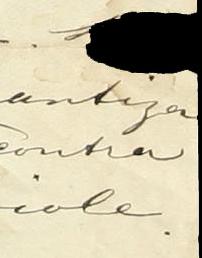 antizar
contra
iole.